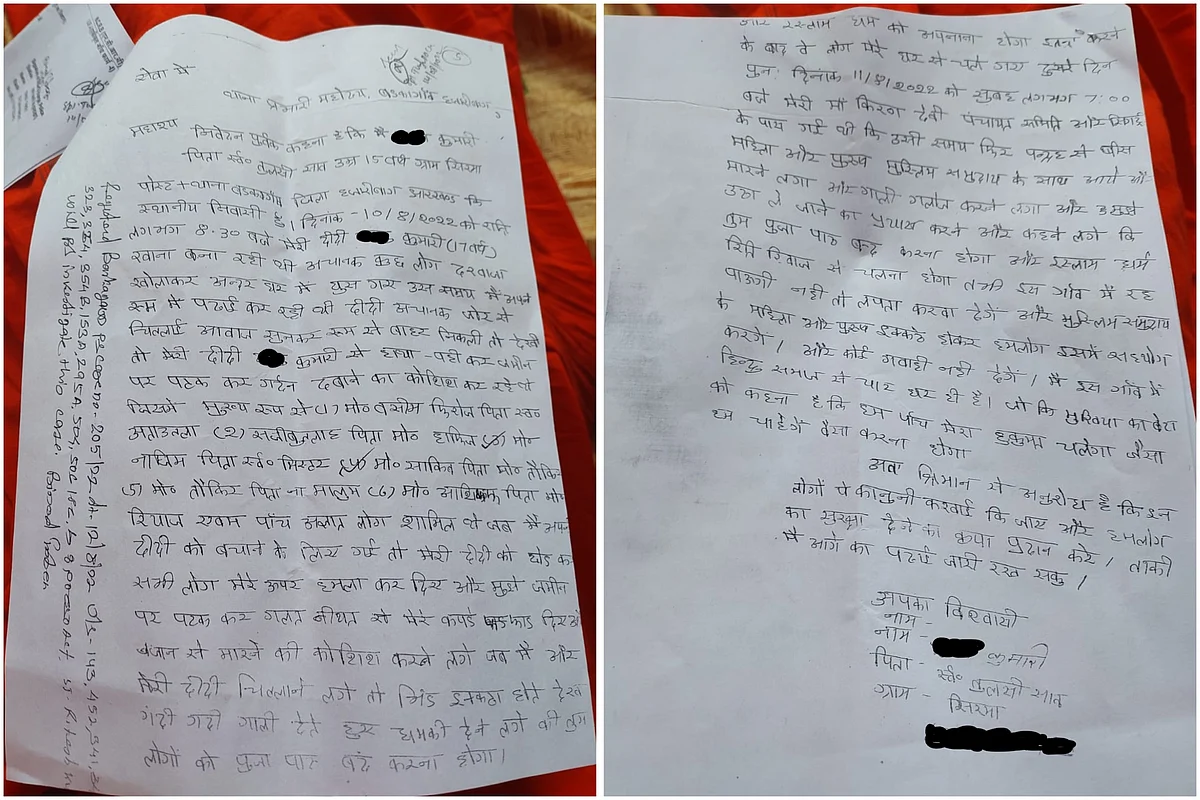 सेवा में
थाना प्रभारी महोदय, बड़कागाँव हजारीबाग,
महाशय
निवेदन पुर्वक कहना है कि मैं कुमारी
पिता स्व० तुलसी साव उम्र 15 वर्ष ग्राम सिरमा
पोस्ट + थाना बड़कागाँव जिला हजारीबाग झारखण्ड कि
स्थानीय निवासी हूँ। दिनांक - 10/8/2022 को रात्रि
लगभग 8:30 बजे मेरी दीदी कुमारी (17 वर्ष)
खाना बना रही थी अचानक कुछ लोग दरवाजा
खोलाकर अन्दर घर में घुस गए उस समय मैं अपने
रूम में पढाई कर रही थी दीदी अचानक जोर से
चिल्लाई आवाज सुनकर रूम से बाहर निकली तो देखी
तो मेरी दीदी कुमारी से हाथा-पही कर जमीन
पर पटक कर गर्दन दबाने का कोशिश कर रहे थे
जिसमे मुख्य रूप से (1) मो० वसीम फिरोज पिता स्व०
अताउल्ला (2) सजीबुल्लाह पिता मो० हामिद मो०
नाधिम पिता स्व० मिस्टर (4) मो० साकिब पिता मो० तौकिर
(5) मो० तौकिर पिता ना मालुम (6) मो० आशिक पिता मो०
रियाज एवम पाँच अज्ञात लोग शामिल थे जब मैं अपने
दीदी को बचाने के लिए गई तो मेरी दीदी को छोड़ कर
सभी लोग मेरे ऊपर हमला कर दिए और मुझे जमीन
पर पटक कर गलत नीयत से मेरे कपडे फाड दिए और
बजान से मारने की कोशिश करने लगे जब मैं और
मेरी दीदी चिल्लाने लगे तो भिड़ इकठठा होते देख
गंदी गंदी गाली देते हुए धमकी देने लगे की तुम
लोगों को पुजा पाठ बंद करना होगा।
Registered Barkagaon PS case no. 205/22 dt. 12/8/22 U/s. 143, 452, 341,
323, 354, 354B, 152A, 295A, 504, 506 IPC & 8 POCSO Act SI Ritesh
will Pd investigate this case.
और इस्लाम धर्म को अपनाना होगा इतना कहने
के बाद वे लोग मेरे घर से चले गए दुसरे दिन
पुनः दिनांक 11/8/2022 को सुबह लगभग 7:00
बजे मेरी माँ किरण देवी पंचायत समिति और
के पास गई थी कि उसी समय फिर पन्द्रह से बीस
महिला और पुरुष मुस्लिम समुदाय के साथ आये और
मारने लगा और गाली गलौज करने लगा और हमसे
उठा ले जाने का प्रयाय करने और कहने लगे कि
तुम पुजा पाठ बन्द करना होगा और इस्लाम धर्म
रिति रिवाज से चलना होगा तभी इस गाँव में रह
पाऊगी नही तो लपता करवा देगें और मुस्लिम समुदाय
के महिला और पुरुष इक्कठे होकर हमलोग इसमें सहयोग
करगें। और कोई गवाही नहीं देगें। मैं इस गाँव में
हिन्दु समाज से चार घर ही है। जो कि मुखिया का बेटा
को कहना है कि हम पाँच मेरा हुकुम चलेगा जैसा
हम चाहेगें वैसा करना होगा
अतः श्रिमान से अनुरोध है कि इन
लोगों पे कानुनी करवाई कि जाए और हमलोग
का सुरक्षा देने का कृपा प्रदान करे। ताकी
मैं आगे का पढाई जारी रख सकु।
आपका विश्वासी
नाम -
नाम - कुमारी
पिता - स्व० तुलसी साव
ग्राम - सिरमा